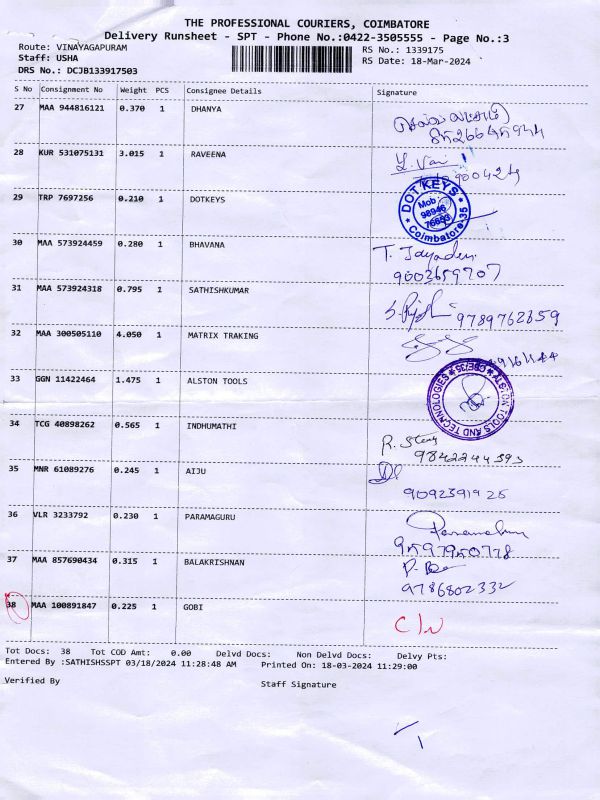 THE PROFESSIONAL COURIERS, COIMBATORE
Delivery Runsheet - SPT - Phone No.:0422-3505555 - Page No.:3
Route: VINAYAGAPURAM
RS No.: 1339175
Staff: USHA
RS Date: 18-Mar-2024
DRS No.: DCJB133917503
S No Consignment No Weight PCS Consignee Details Signature
27 MAA 944816121 0.370 1 DHANYA
28 KUR 531075131 3.015 1 RAVEENA
29 TRP 7697256 0.210 1 DOTKEYS
DOT KEYS
Mob
Coimbatore-35
30 MAA 573924459 0.280 1 BHAVANA
9003659707
31 MAA 573924318 0.795 1 SATHISHKUMAR
9789762659
32 MAA 300505110 4.050 1 MATRIX TRAKING
33 GGN 11422464 1.475 1 ALSTON TOOLS
ALSTON TOOLS AND TECHNOLOGIES CBE/35
34 TCG 40898262 0.565 1 INDHUMATHI
9842244393
35 MNR 61089276 0.245 1 AIJU
9092391926
36 VLR 3233792 0.230 1 PARAMAGURU
9597950778
37 MAA 857690434 0.315 1 BALAKRISHNAN
9786802332
38 MAA 100891847 0.225 1 GOBI
Tot Docs: 38 Tot COD Amt: 0.00 Delvd Docs: Non Delvd Docs: Delvy Pts:
Entered By :SATHISHSSPT 03/18/2024 11:28:48 AM Printed On: 18-03-2024 11:29:00
Verified By Staff Signature